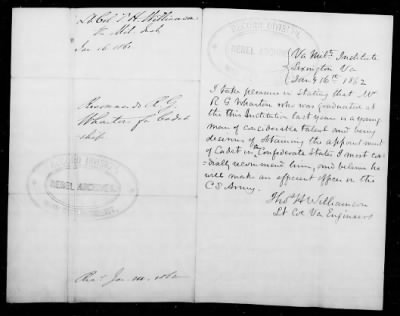 Lt Col T. H. Williamson
Va Mil. Inst
Jan 16 1862
Recommends R. G.
Wharton for Cadet
ship
RECORD DIVISION
REBEL ARCHIVES
RECORD DIVISION
REBEL ARCHIVES
Va Mil. Institute
Lexington Va
Jany 16th 1862
I take pleasure in stating that Mr
R G Wharton who was graduated at
the this Institution last year is a young
man of considerable talent and being
desirous of obtaining the appointment
of Cadet in the Confederate States I most cor-
dially recommend him, and believe he
will make an efficient officer in the
C S Army.
Thos H Williamson
Lt Col Va Engineers